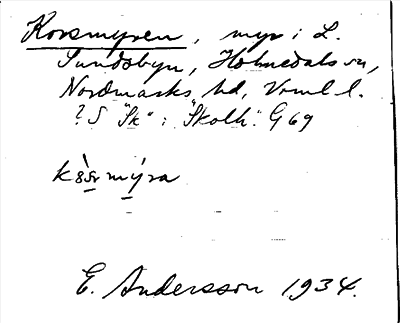 Korsmyren, myr i L.
Sundsbyn, Holmedals sn,
Nordmarks hd, Vrml l.
? S "Sk" i "Skolh". G 69
myra
E. Andersson 1934.